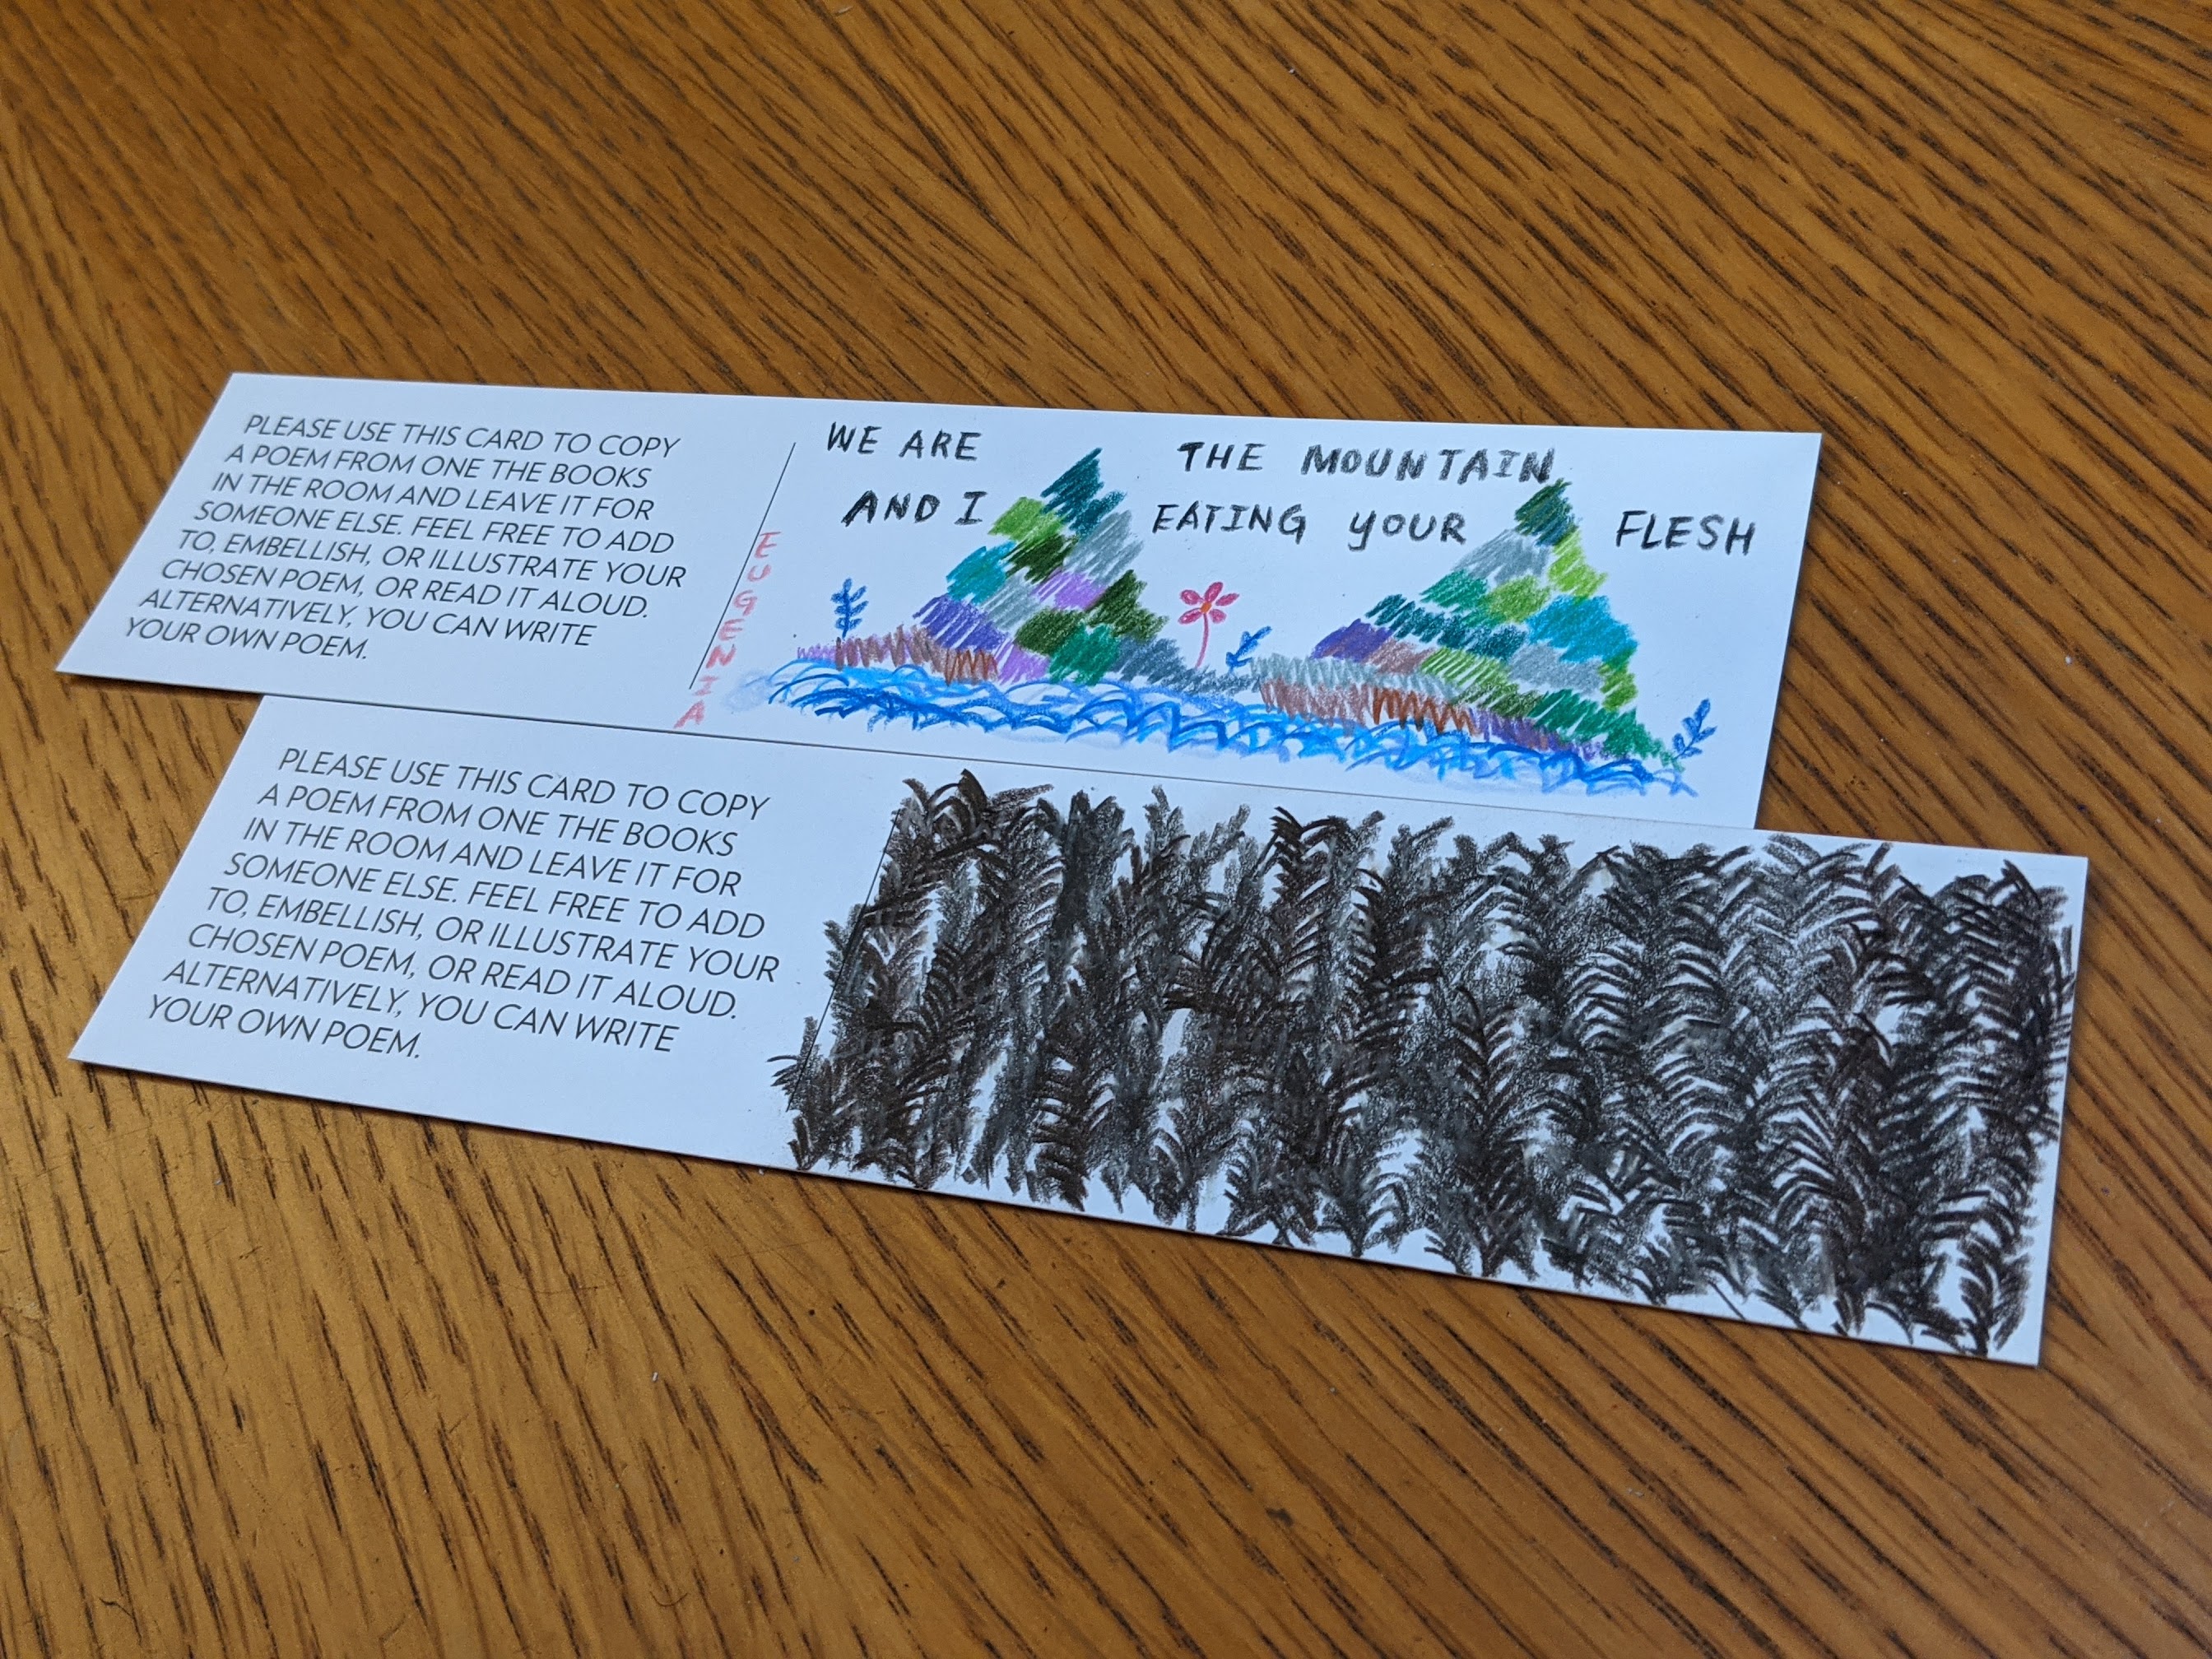 PLEASE USE THIS CARD TO COPY
A POEM FROM ONE THE BOOKS
IN THE ROOM AND LEAVE IT FOR
SOMEONE ELSE. FEEL FREE TO ADD
TO, EMBELLISH, OR ILLUSTRATE YOUR
CHOSEN POEM, OR READ IT ALOUD.
ALTERNATIVELY, YOU CAN WRITE
YOUR OWN POEM.
EUGENIA
WE ARE THE MOUNTAIN
AND I EATING YOUR FLESH
PLEASE USE THIS CARD TO COPY
A POEM FROM ONE THE BOOKS
IN THE ROOM AND LEAVE IT FOR
SOMEONE ELSE. FEEL FREE TO ADD
TO, EMBELLISH, OR ILLUSTRATE YOUR
CHOSEN POEM, OR READ IT ALOUD.
ALTERNATIVELY, YOU CAN WRITE
YOUR OWN POEM.